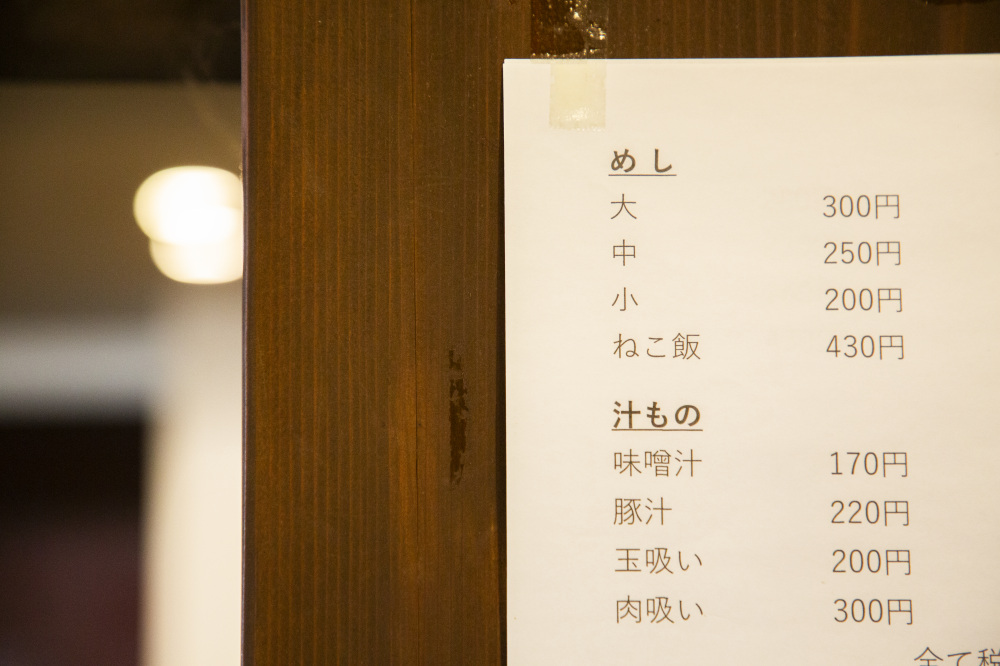 めし
大 300円
中 250円
小 200円
ねこ飯 430円
汁もの
味噌汁 170円
豚汁 220円
玉吸い 200円
肉吸い 300円
全て税